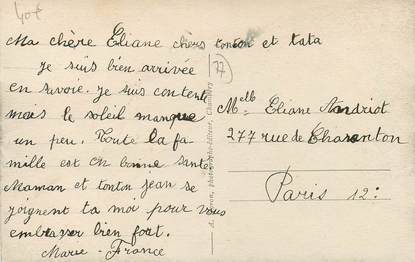 40f
Ma chère Eliane chers tonton et tata
Je suis bien arrivée
en savoie. Je suis contente
mais le soleil manque
un peu. Toute la fa-
mille est en bonne santé
Maman et tontin jean se
joignent ta moi pour vous
embrasser bien fort.
Marie-France
77
Melle Eliane Andriot
277 rue de Charenton
Paris 12e